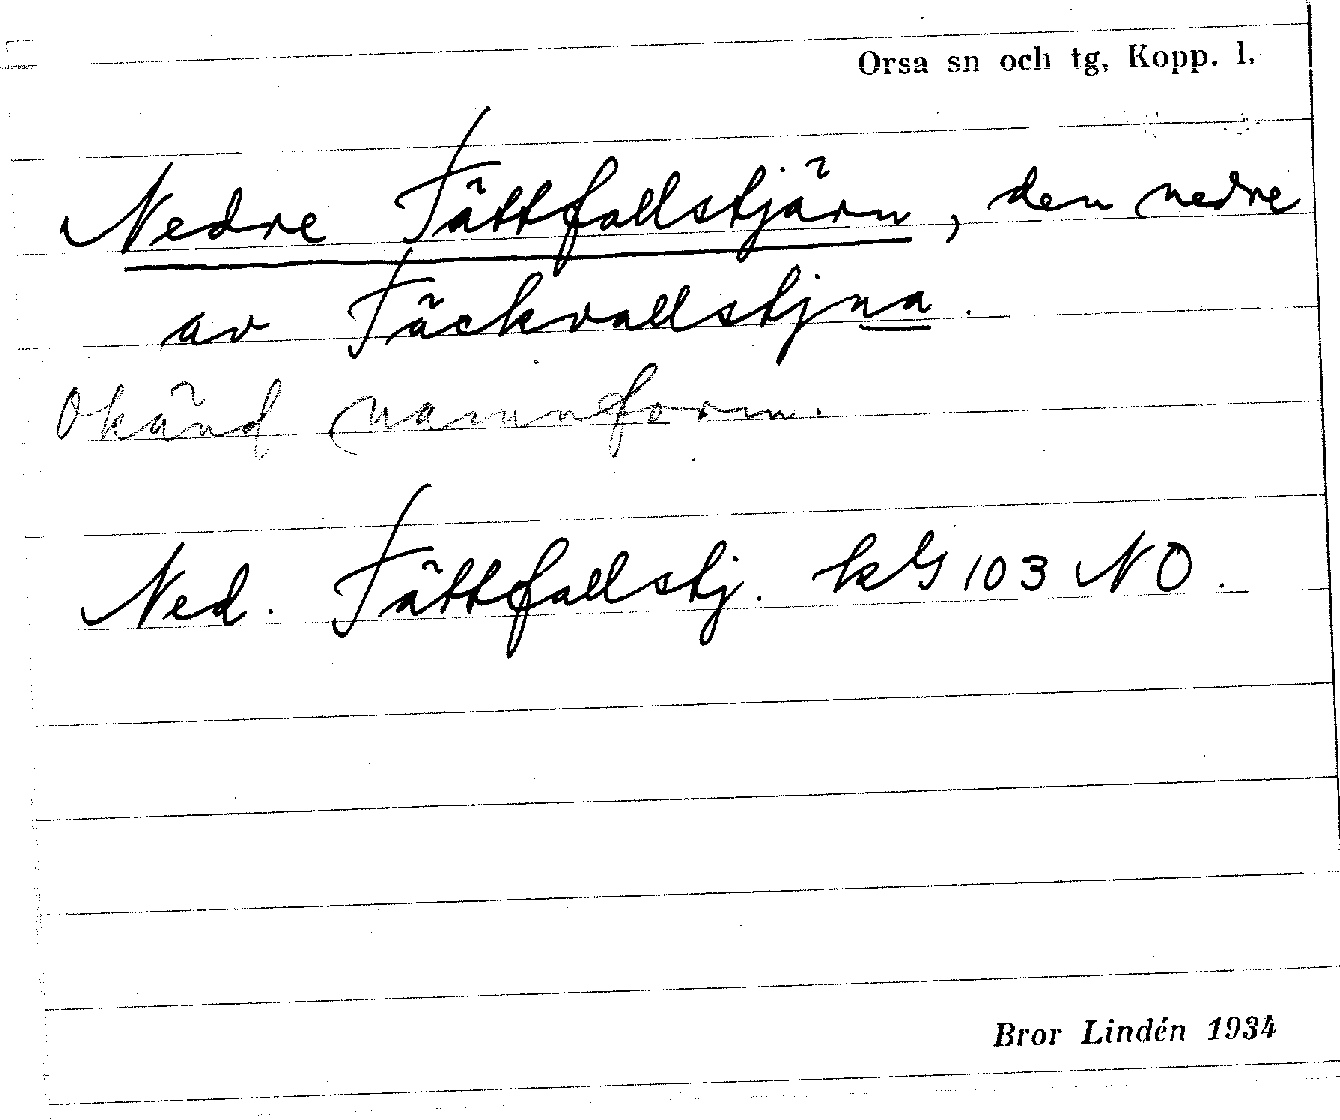 Orsa sn och tg, Kopp. l.
Nedre Tättfallstjärn, den nedre
av Täckvallstjna.
Okänd namnform.
Ned. Tättfallstj. kbl 103 NO.
Bror Lindén 1934